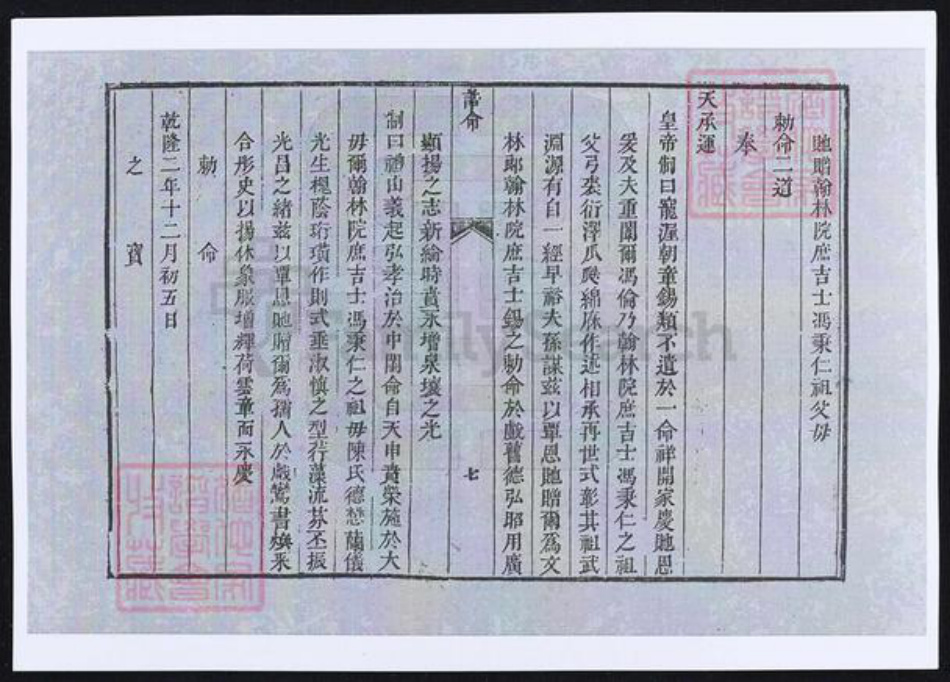 貤贈翰林院庶吉士馮秉仁祖父母
勅命二道
奉
天承運
皇帝制曰寵渥朝章錫類不遺於一命祥開家慶貤恩
爰及夫重闈爾馮倫乃翰林院庶吉士馮秉仁之祖
父弓裘衍澤瓜瓞綿庥作述相承再世式彰其祖武
淵源有自一經早裕夫孫謀茲以覃恩貤贈爾爲文
林郎翰林院庶吉士錫之勅命於戲舊德弘昭用廣
誥命
七
顯揚之志新綸時賁永增泉壤之光
制曰禮由義起弘孝治於中闈命自天申賁榮施於大
毋爾翰林院庶吉士馮秉仁之祖毋陳氏德懋蘭儀
光生槐蔭珩璜作則式垂淑慎之型荇藻流芬丕振
光昌之緒茲以覃恩貤贈爾爲孺人於戲鸞書煥釆
合彤史以揚休象服增輝荷雲章而永慶
勅命
乾隆二年十二月初五日
之寶
FamilySearch